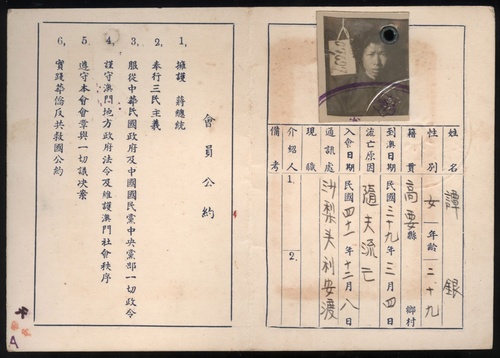 姓名 譚銀
性別 女 年齡 二十九
籍貫 高要縣 鄉村
到澳日期 民國三十九年三月四日
流亡原因 隨夫流亡
入會日期 民國四十一年十二月八日
通訊處 沙梨头利安渡
現職
介紹人 1. 2.
備考
會員公約
1, 擁護 蔣總統
2, 奉行三民主義
3, 服從中華民國政府及中國國民黨中央黨部一切政令
4, 謹守澳門地方政府法令及維護澳門社會秩序
5, 遵守本會會章與一切議決案
6, 實踐華僑反共救國公約
A